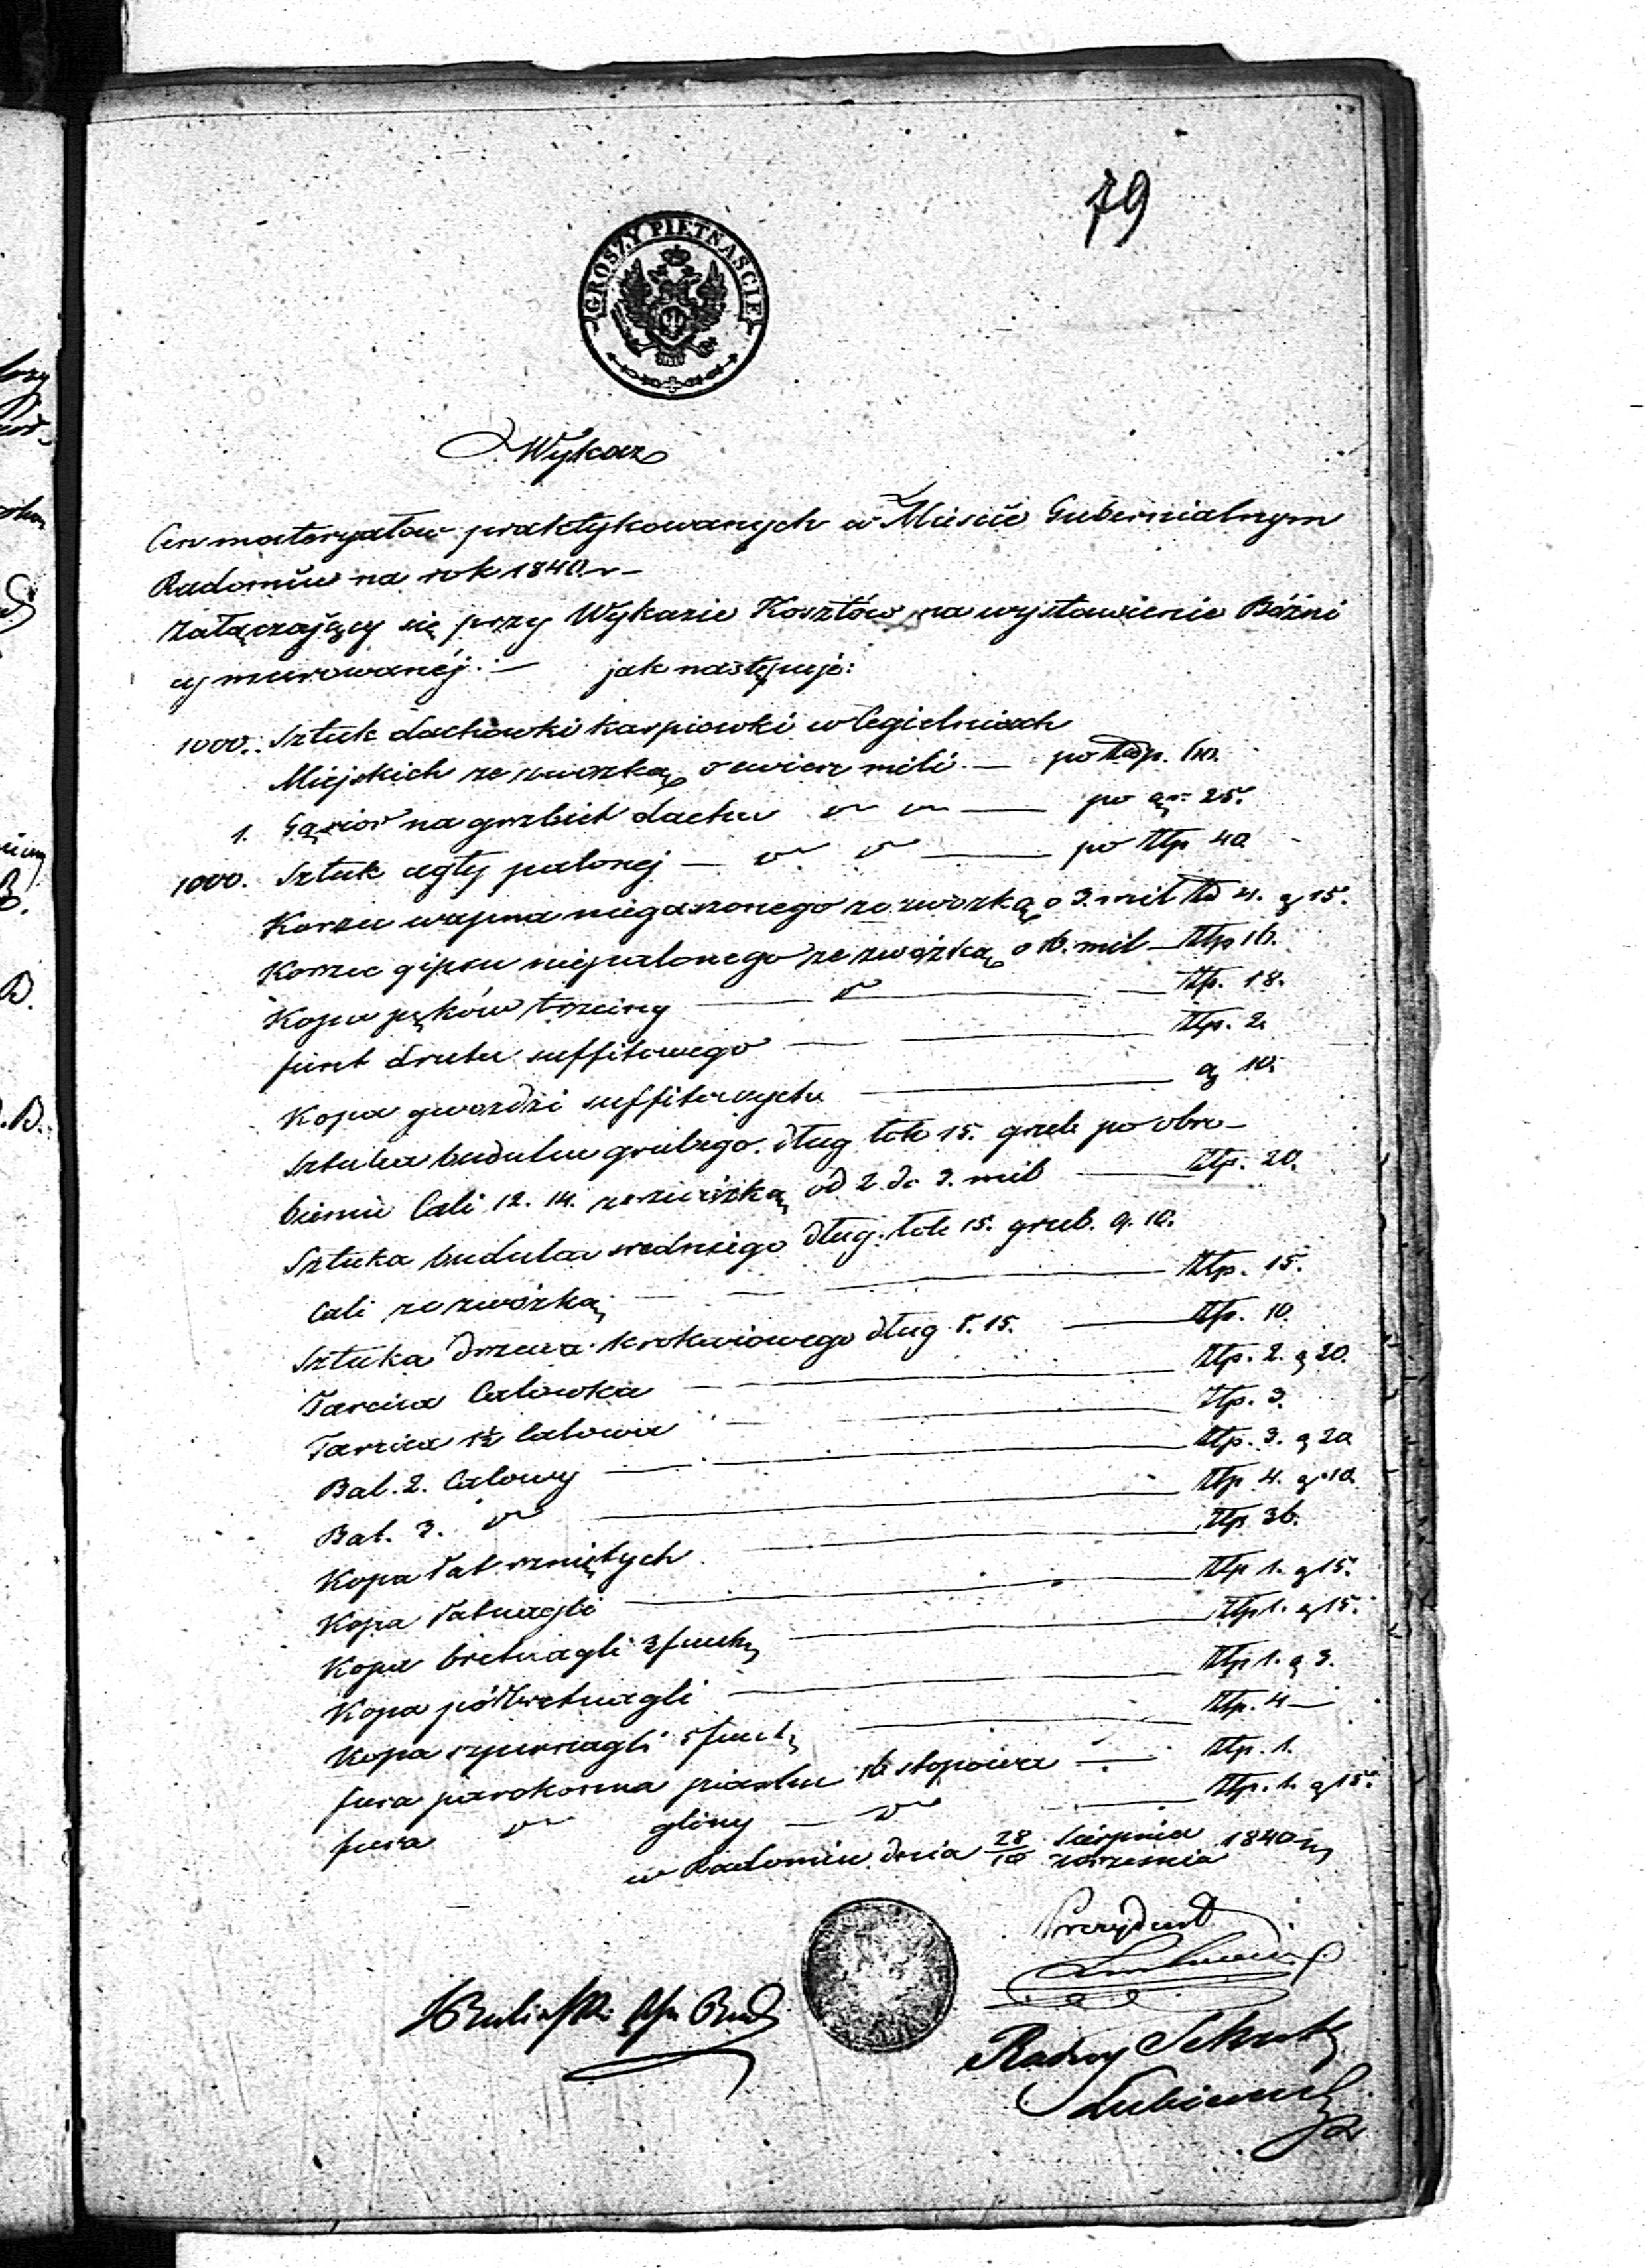 79
GROSZY PIETNAŚCIE
Wykaz
Cen materyałow praktykowanych w Mieście Gubernialnym
Radomiu na rok 1840 r
załączający się przy Wykazie Kosztów na wystawienie Bóżni
cy murowanéj. — jak następuje:
1000. Sztuk dachówki karpiowki w Cegielniach
Miejskich ze zwozką o ćwierć mili — po Złp. 60.
1. Gąsior na grzbiet dachu — po gr. 25.
1000. Sztuk cegły palonej — po Złp 40
Korzec wapna niegaszonego ze zwozką o 3. mil Zł 4. g 15.
Korzec gipsu niepalonego ze zwózką o 16. mil — Złp 16.
Kopa pęków trzciny — Złp. 18.
funt drutu suffitowego — Złp. 2.
Kopa gwozdzi suffitowych — g 10.
Sztuka budulcu grubego. dług łok 15. grub po obro-
bieniu Cali 12. 14. ze zwózką od 2 do 3. mil — Złp. 20.
Sztuka budulcu sredniego dług. łok 15. grub. 9. 10.
Cali ze zwózką — Złp. 15.
Sztuka drzewa krokwiowego dług ł. 15. — Złp. 10.
Tarcica Calowka — Złp. 2. g 20.
Tarcica 1½ Calowa — Złp. 3.
Bal. 2. Calowy — Złp. 3. g 20
Bal. 3. — Złp 4. g 10
Kopa łat rzniętych — Złp 36.
Kopa łatnagli — Złp 1. g 15.
Kopa bretnagli — Złp 1. g 15.
Kopa półbretnagli — Złp 1. g 3.
Kopa szpernagli — Złp. 4 —
fura parokonna piasku 16 stopowa — Złp. 1.
fura gliny — Złp. 1. g 15.
w Radomiu dnia 28/10 Sierpnia/Września 1840 r
Prezydent
Radny Sekret